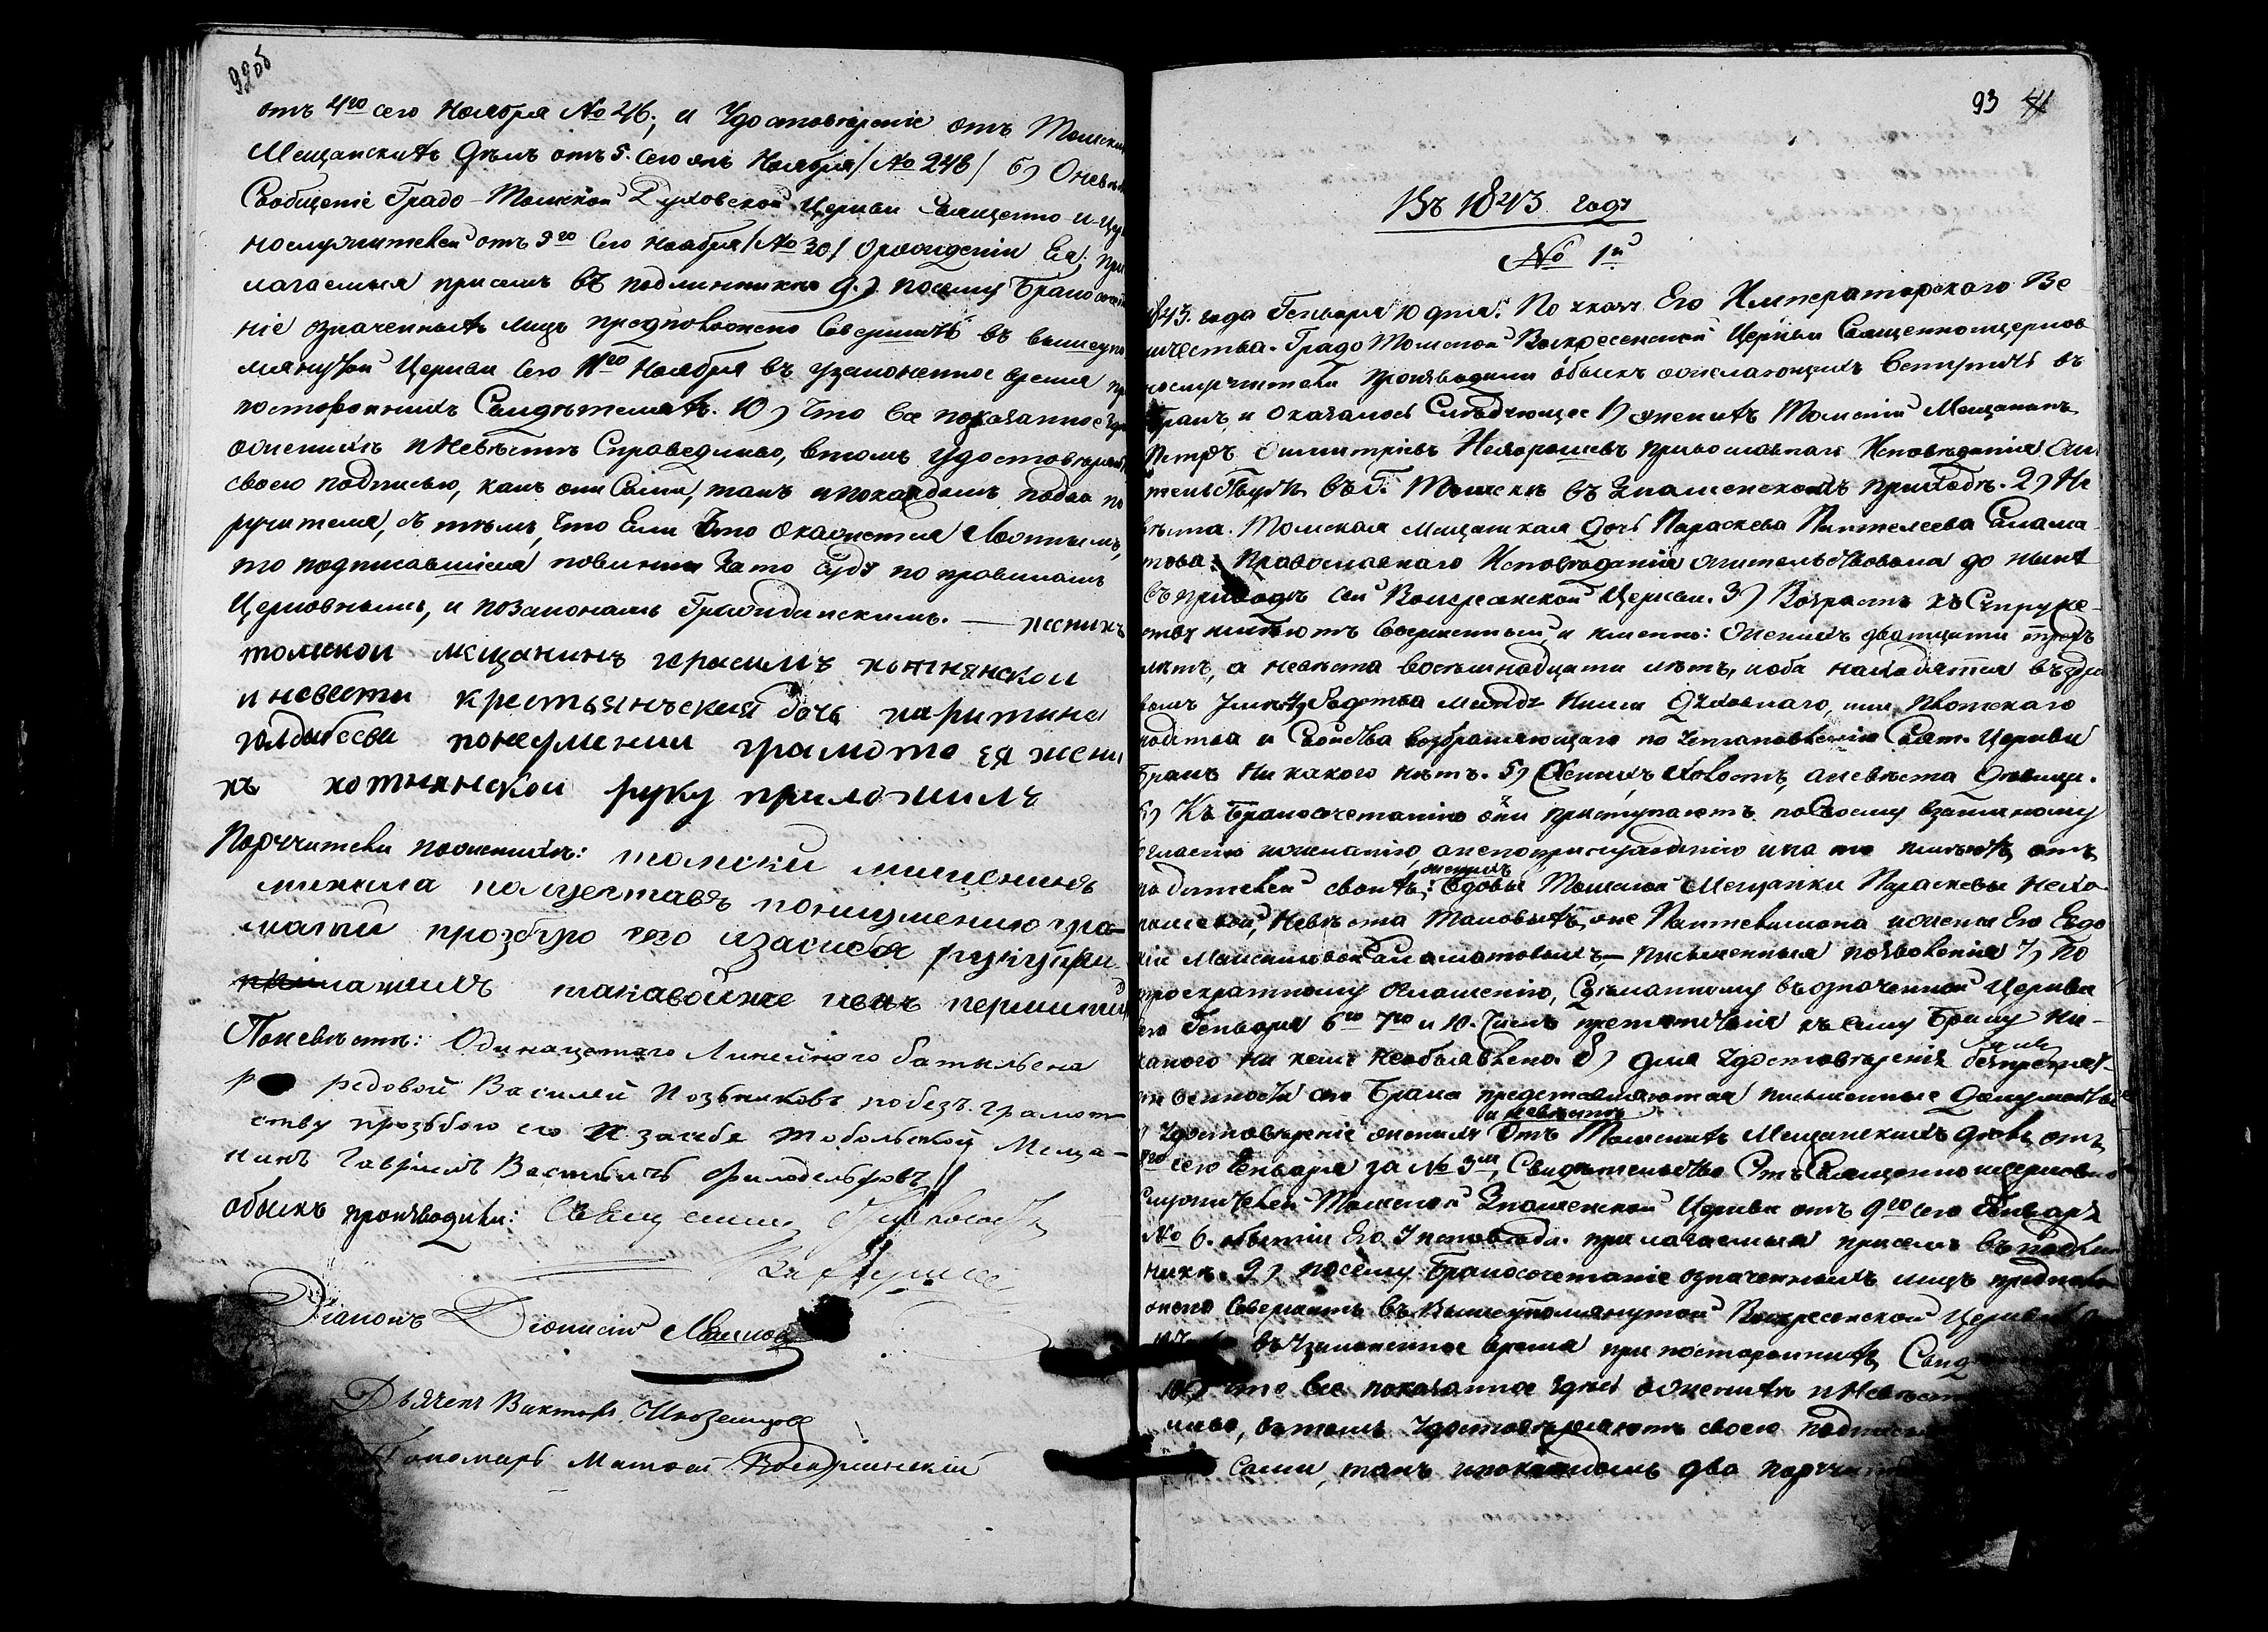 92об
отъ 4го сего Ноября № 26; и Удостовѣреніе отъ Томски
Мещанскихъ Дѣлъ отъ 5. Сего жъ Ноября /№ 246/ б) О невѣ
Сообщеніе Градо-Томской Духовской Церкви Священно и Це
нослужителей отъ 9го Сего ноября /№ 30/ О рожденіи Ея, при
лагаемыя присемъ въ подлинникѣ 9.) посему Бракосочета
ніе означенныхъ лицъ предположено Совершить въ вышеупо
мянутой Церкви Сего 11го Ноября въ узаконенное время пр
постороннихъ Свидѣтеляхъ. 10) Что все показанное здѣ
о женихѣ и Невѣстѣ Справедливо, втомъ удостовѣряютъ
своею подписью, какъ они Сами, такъ и по каждомъ подва по
ручителя, съ тѣмъ, Что Ели Что окажется Ложнымъ,
то подписавшіеся повинни За то Суду по правиламъ
Церковнымъ, и по законамъ Гражданскимъ. — жених
томской мещанинъ герасимъ хотнянской
и невести крестьянъская дочь
понеумении грамоте ея жени
хъ хотнянской руку приложилъ
Поручители по женихѣ: томски мищенинъ
михила понеумению гра
моти прозбую его изасибя руку при
лажилъ такавойже
По невѣстѣ: Одинацетаго Линейного батальена
редовой Василей Позьняковъ побезъ грамот
ству прозьбою его И засебя тобольской Меща-
нинъ Гаврилъ Васильевъ
обыскъ производили: Священникъ
Діаконъ Діонисій
Дьячекъ Викторъ Иноземцовъ
Пономарь Матвей Воскресенскій
93
Въ 1843 году
№ 1й
1843. года Генваря 10 дня. По указу Его Императорскаго Ве
личества. Градо Томской Воскресенской Церкви Священноцерков
нослужители производили обыскъ о желающихъ вступить въ
бракъ, и оказалось Слѣдующее 1) женихъ Томскій Мещанинъ
Петръ Димитріевъ Нехорошевъ православнаго Исповѣданія жи
тельствуетъ въ Г. Томскѣ въ Знаменскомъ приходѣ. 2) Не
вѣста. Томская мещанская Дочь Параскева Пантелеева Салама
това: Православнаго Исповѣданія жительствовала до нынѣ
въ приходѣ сей Воскресенской Церкви. 3) Возрастъ къ Супруже-
ству имѣютъ Совершенный, и именно: Женихъ дватцати трехъ
лѣтъ, а невѣста восемнадцати лѣтъ, и оба находятся въ здра
вомъ Умѣ 4) Родства между Ними Духовнаго, или Плотскаго
родства и Свойства возбраняющаго по Установленію Свят. Церкви
бракъ Никакого нѣтъ. 5) Женихъ Холостъ, а невѣста Дѣвица.
6) Къ Бракосочетанію они приступаютъ по Своему взаимному
согласію и желанію, а не по принужденію и на то имѣютъ отъ
родителей своихъ: женихъ Вдовы Томской Мещанки Параскевы Нехо
рошевой, Невѣста таковыхъ же Пантелимона и жены Его Евдо
кіи Максимовой Саламатовыхъ,— письменныя позволенія 7) По
троекратному оглашенію, Сдѣланному въ означенной Церкви
Сего Генваря 6го 7го и 10. Числъ препятствія къ сему Браку ни-
какого ни кемъ необъявлено. 8) Для Удостовѣренія безпрепят-
ственности сего Брака представляются письменные Документы
Удостовѣреніе о женихѣ и невѣстѣ Отъ Томскихъ Мещанскихъ дѣлъ отъ
сего Генваря за № 3м, Свидѣтельство Отъ Священноцерковно
служителей Томской Знаменской Церкви отъ 9го сего Генваря
№ 6. о бытіи Его У исповѣди. прилагаемыя присемъ въ подлин
никѣ. 9) посему Бракосочетаніе означенныхъ лицъ предполо
жено Совершить въ вышеупомянутой Воскресенской Церкви
въ Узаконенное время при постороннихъ Свид
10) что все показанное здѣсь о женихѣ и Невѣст
ливо, въ томъ Удостовѣряютъ своею подпис
Сами, такъ и по каждомъ два поручит